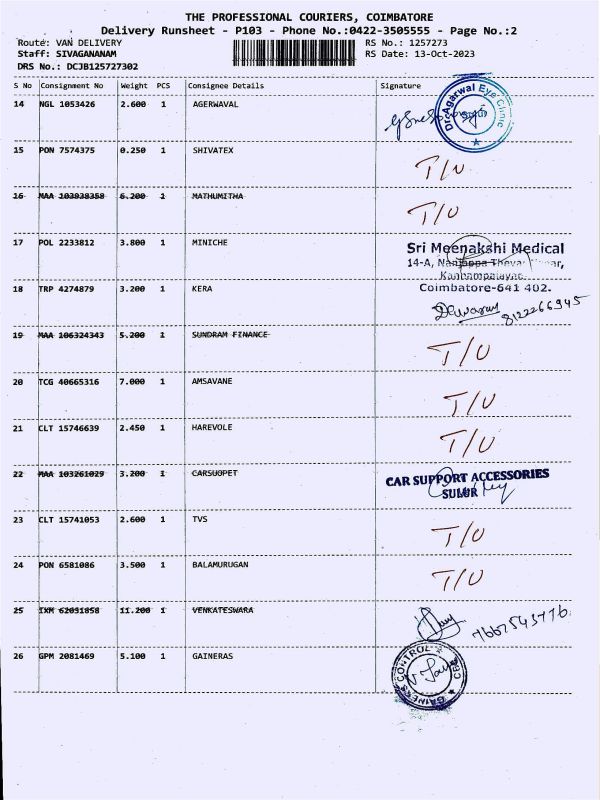 THE PROFESSIONAL COURIERS, COIMBATORE
Delivery Runsheet - P103 - Phone No.:0422-3505555 - Page No.:2
Route: VAN DELIVERY RS No.: 1257273
Staff: SIVAGANANAM RS Date: 13-Oct-2023
DRS No.: DCJB125727302
S No Consignment No Weight PCS Consignee Details Signature
14 NGL 1053426 2.600 1 AGERWAVAL
Dr.Agarwal Eye Clinic
15 PON 7574375 0.250 1 SHIVATEX T/U
16 MAA 103938358 6.200 1 MATHUMITHA T/U
17 POL 2233812 3.800 1 MINICHE
Sri Meenakshi Medical
14-A,
Kannampalayam,
Coimbatore-641 402.
18 TRP 4274879 3.200 1 KERA
8122266945
19 MAA 106324343 5.200 1 SUNDRAM FINANCE T/U
20 TCG 40665316 7.000 1 AMSAVANE T/U
21 CLT 15746639 2.450 1 HAREVOLE T/U
22 MAA 103261029 3.200 1 CARSUOPET
CAR SUPPORT ACCESSORIES
SULUR
23 CLT 15741053 2.600 1 TVS T/U
24 PON 6581086 3.500 1 BALAMURUGAN T/U
25 IXM 62031858 11.200 1 VENKATESWARA
26 GPM 2081469 5.100 1 GAINERAS
CONTROL